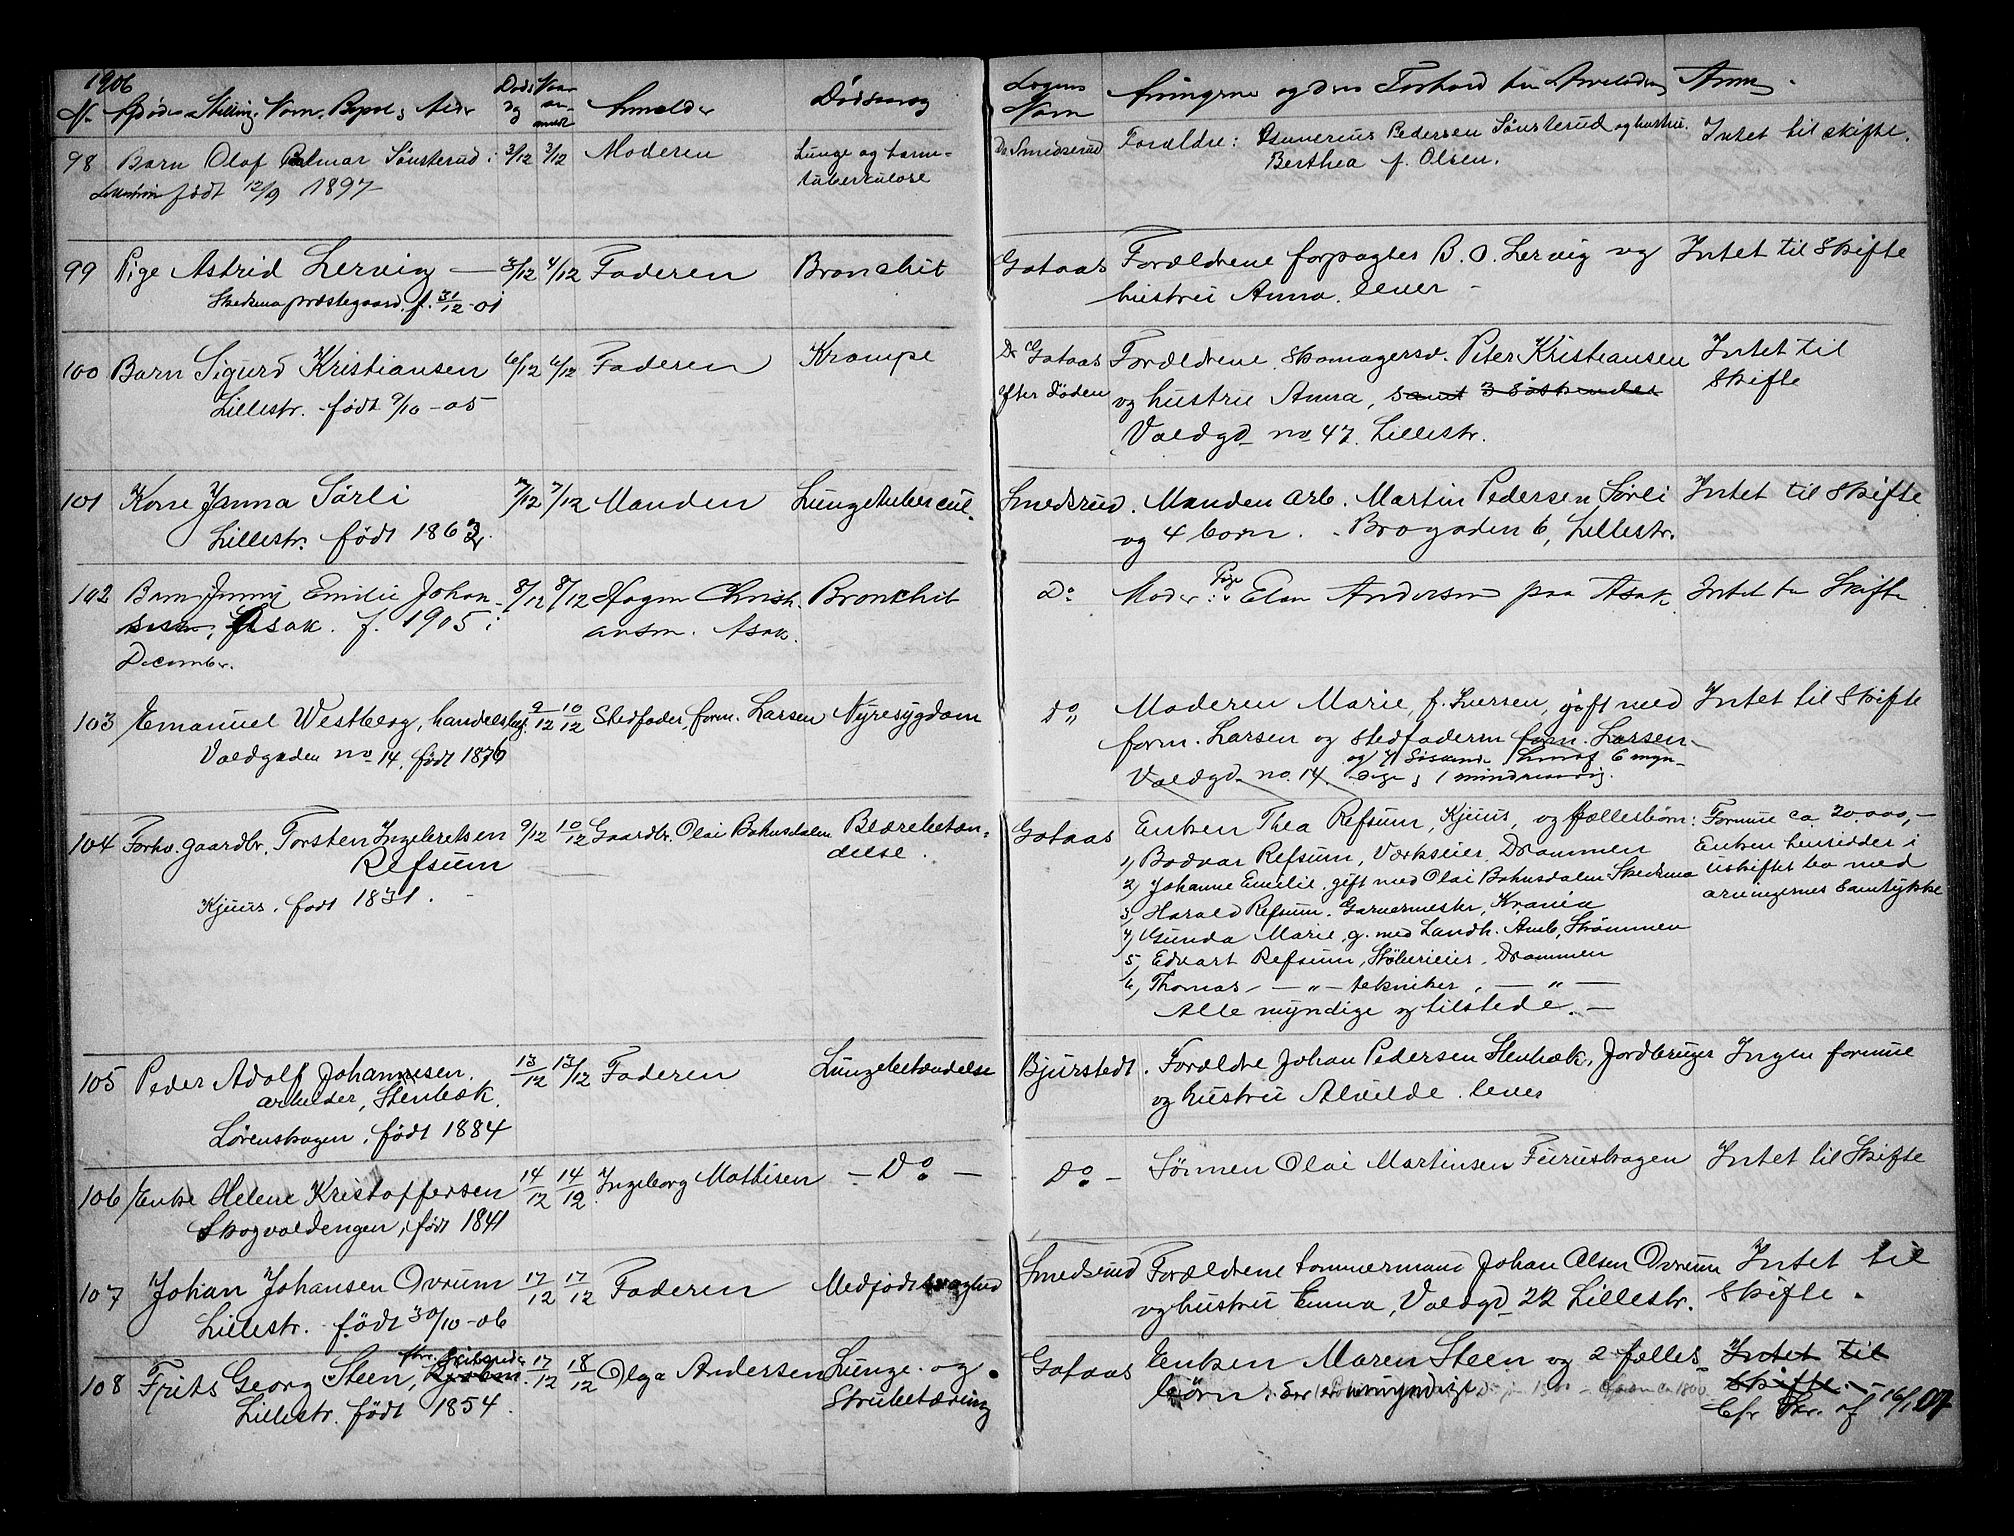 1906
No Afdødes Stilling, Navn, Bopæl, Alder Døds dg Naar anmeldt Anmelder Dødsaarsag Lægens Navn Arvingerne og deres Forhold til Anm.
98 Barn Olaf Palmar Sønsterud i 3/12 3/12 Moderen Lunge og tarm- Dr Smedsrud Forældre: Pedersen Sønsterud og hustru Intet til skifte.
født 12/9 1897 tuberkulose Berthea f. Olsen.
99 Pige Astrid Lervig — 3/12 4/12 Faderen Bronchit Gotaas Forældrene forpagter B. O. Lervig og Intet til Skifte
Skedsmo præstegaard. f. 31/12 -01 hustru Anna. lever -
100 Barn Sigurd Kristiansen 6/12 6/12 Faderen Krampe Dr Gotaas Forældrene. Skomagersv. Peter Kristiansen Intet til
Lillestr. født 9/10 -05 efter Døden og hustru Anna, samt 3 Søskende Skifte
Voldgd no 47. Lillestr.
101 Kone Janna Sørli 7/12 7/12 Manden Lungetubercul. Smedsrud. Manden Arb. Martin Pedersen Sørli Intet til Skifte
Lillestr. født 1863 og 4 børn. Brogaden 6, Lillestr.
102 Barn Jenny Emilie Johan- 8/12 8/12 Hagen Christi- Bronchit Do Moder: Pige Elen Andersen paa Asak. Intet til Skifte
sen, Asak. f. 1905 i ansen. Asak.
Decembr.
103 Emanuel Westberg, handelsbetj. 9/12 10/12 Stedfader, form. Larsen Nyresygdom Do Moderen Marie, f. Iversen, gift med Intet til Skifte
Voldgaden no 14. født 1876 form. Larsen og stedfaderen form. Larsen
Voldgd no. 14. og 7 Søskende 6 myn-
dige & 1 mindreaarig.
104 Forhv. gaardbr. Torsten Ingebretsen 9/12 10/12 Gaardbr. Olai Bohusdalen Blærebetæn- Gotaas Enken Thea Refsum, Kjuus, og fællesbørn: Formue ca. 20.000,-
Refsum delse. 1, Bodvar Refsum, Værkseier, Drammen Enken hensidder i
2, Johanne Emilie, gift med Olai Bohusdalen Skedsmo uskiftet bo med
Kjuus. født 1831. 3, Harald Refsum. Garvermester, Krania arvingernes Samtykke
4, Gunda Marie, g. med Landh. Amb, Strømmen
5, Edvart Refsum, Støberieier. Drammen
6, Thomas - — " — tekniker, — " —
Alle myndige og tilstede. —
105 Peder Adolf Johannesen. 13/12 13/12 Faderen Lungebetændelse Bjurstedt. Forældre Johan Pedersen Stenbæk, Jordbruger Ingen formue
arbeider, Stenbæk, og hustru Alvilde. lever
Lørenskogen, født 1884
106 Enke Helene Kristoffersen 14/12 14/12 Ingeborg Mathisen — Do — Do — Sønnen Olai Martinsen Furuskogen Intet til Skifte
Skogvoldengen, født 1841
107 Johan Johansen Ovrum 17/12 17/12 Faderen Medfødt svaghed Smedsrud Forældrene tømmermand Johan Olsen Ovrum Intet til
Lillestr. født 30/10 -06 og hustru Emma, Voldgd 22 Lillestr. Skifte.
108 Frits Georg Steen, 17/12 18/12 Olga Andersen Lunge- og Gotaas Enken Maren Steen og 2 fælles- Intet til
Lillestr. født 1854. Strubetæring børn. Skifte. —
Cfr Pr. af 16/1 07